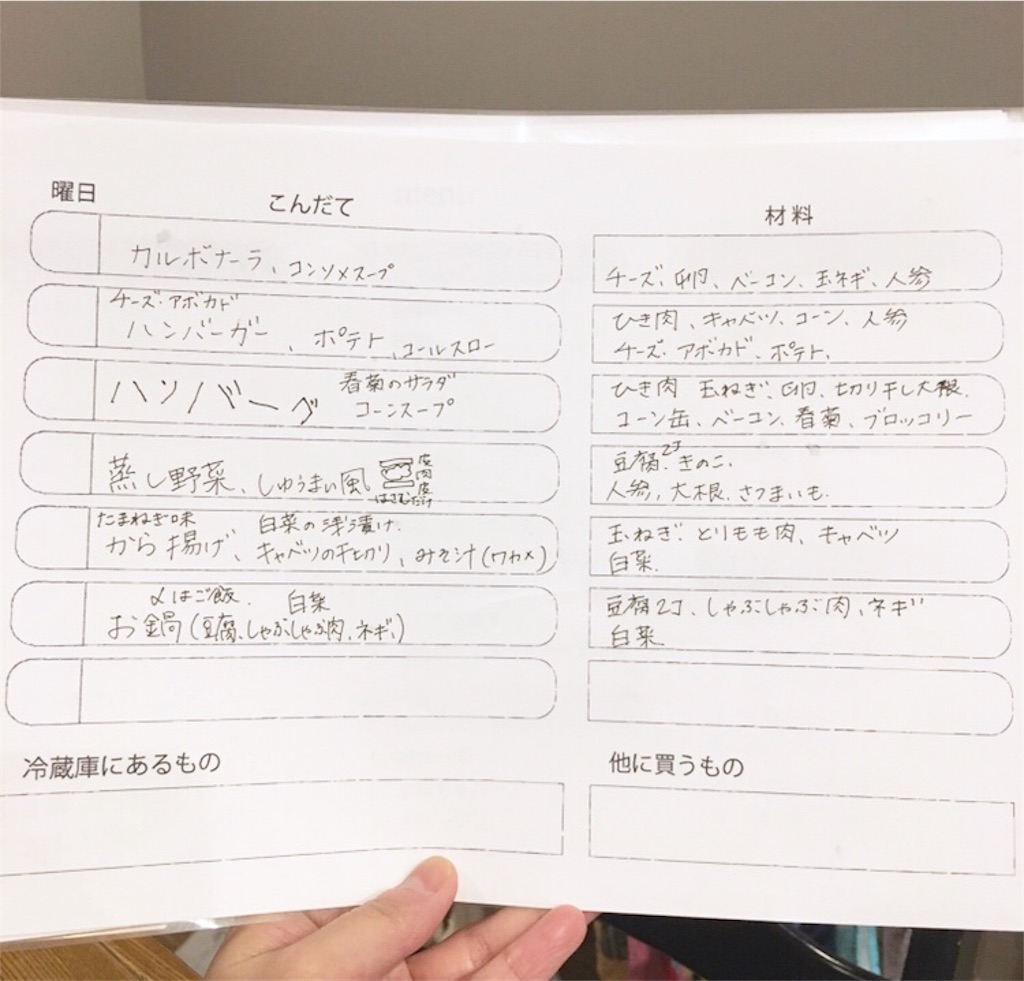 曜日 こんだて 材料
カルボナーラ、コンソメスープ
チーズ、卵、ベーコン、玉ネギ、人参
チーズ・アボカド
ハンバーガー、ポテト、コールスロー
ひき肉、キャベツ、コーン、人参
チーズ・アボカド、ポテト、
ハンバーグ
看菊のサラダ
コーンスープ
ひき肉 玉ねぎ、卵、切り干し大根、
コーン缶、ベーコン、看菊、ブロッコリー
蒸し野菜、しゅうまい風
皮
肉
皮
はさむだけ
豆腐2丁、きのこ、
人参、大根、さつまいも、
たまねぎ味 白菜の浅漬け、
から揚げ、キャベツの千切り、みそ汁(ワカメ)
玉ねぎ、とりもも肉、キャベツ
白菜、
〆はご飯、 白菜
お鍋(豆腐、しゃぶしゃぶ肉、ネギ、)
豆腐2丁、しゃぶしゃぶ肉、ネギ
白菜
冷蔵庫にあるもの 他に買うもの